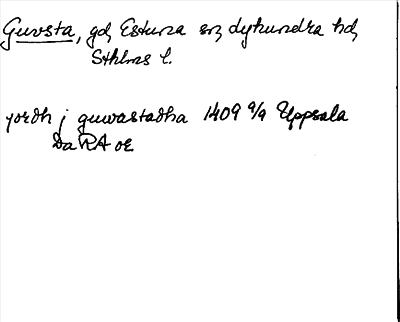 Guvsta, gd, Estuna sn, Lyhundra hd,
Sthlms l.
jordh j guvastadha 1409 9/9 Uppsala
Da RA oE